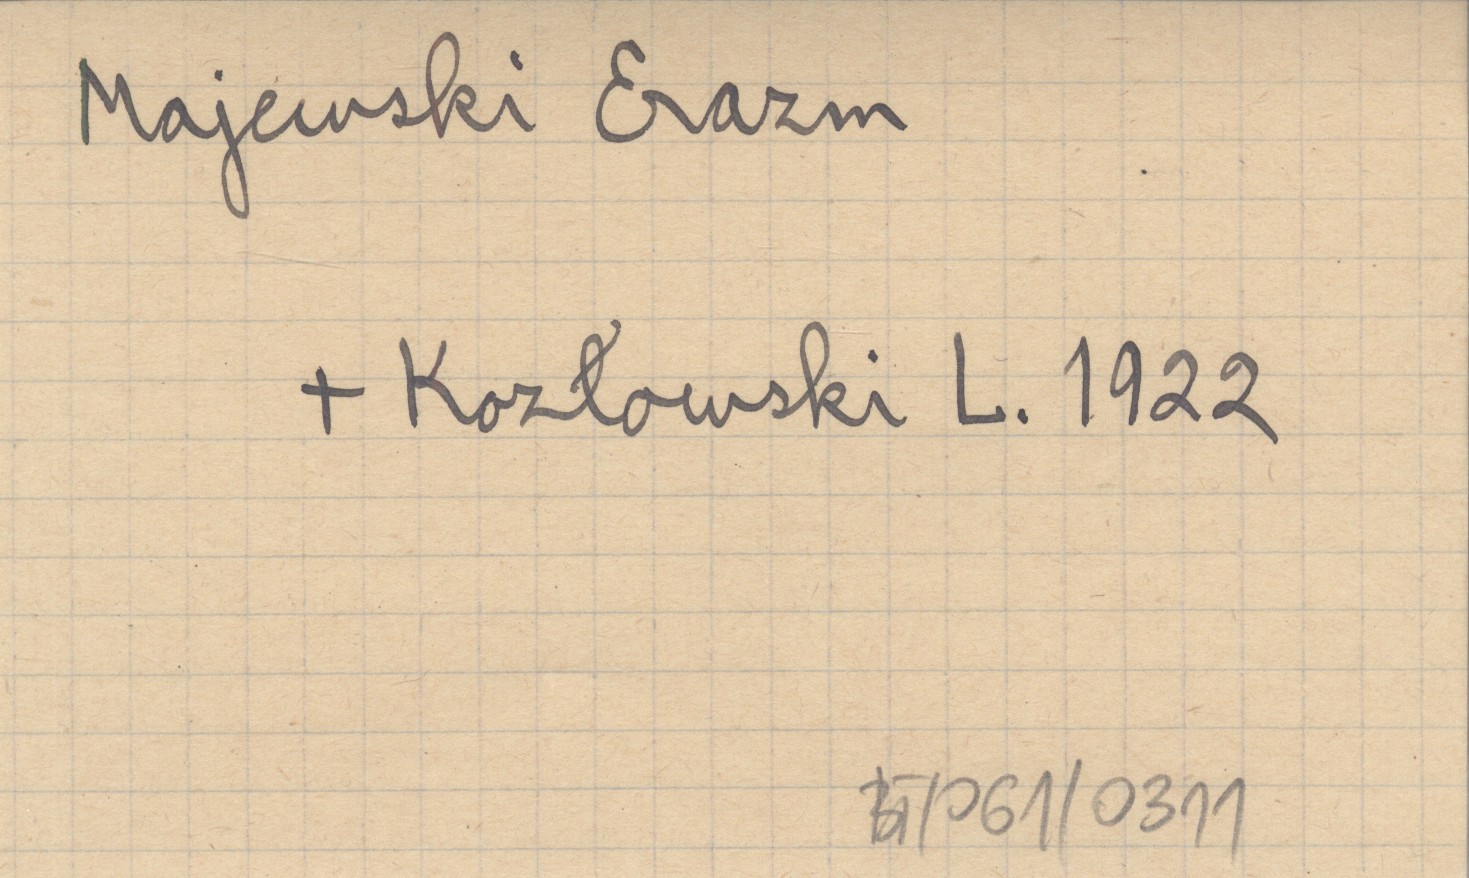 Majewski Erazm
+ Kozłowski L. 1922
/P61/0311